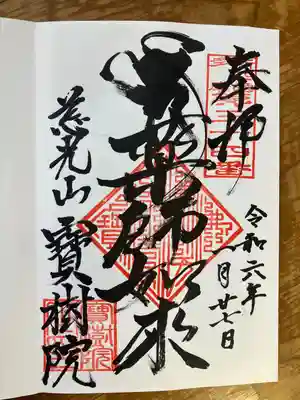 奉拝
令和六年
一月廿七日
薬師如来
慈光山
寶樹院